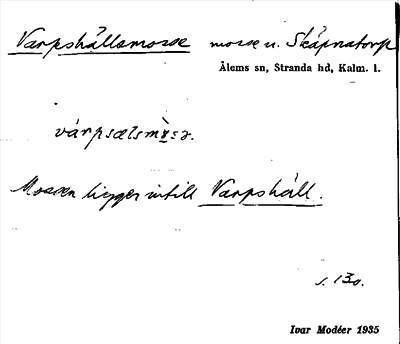 Varpshållsmosse mosse u. Skäpnatorp
Ålems sn, Stranda hd, Kalm. l.
Mossen ligger intill Varpshåll.
s. 130.
Ivar Modéer 1935